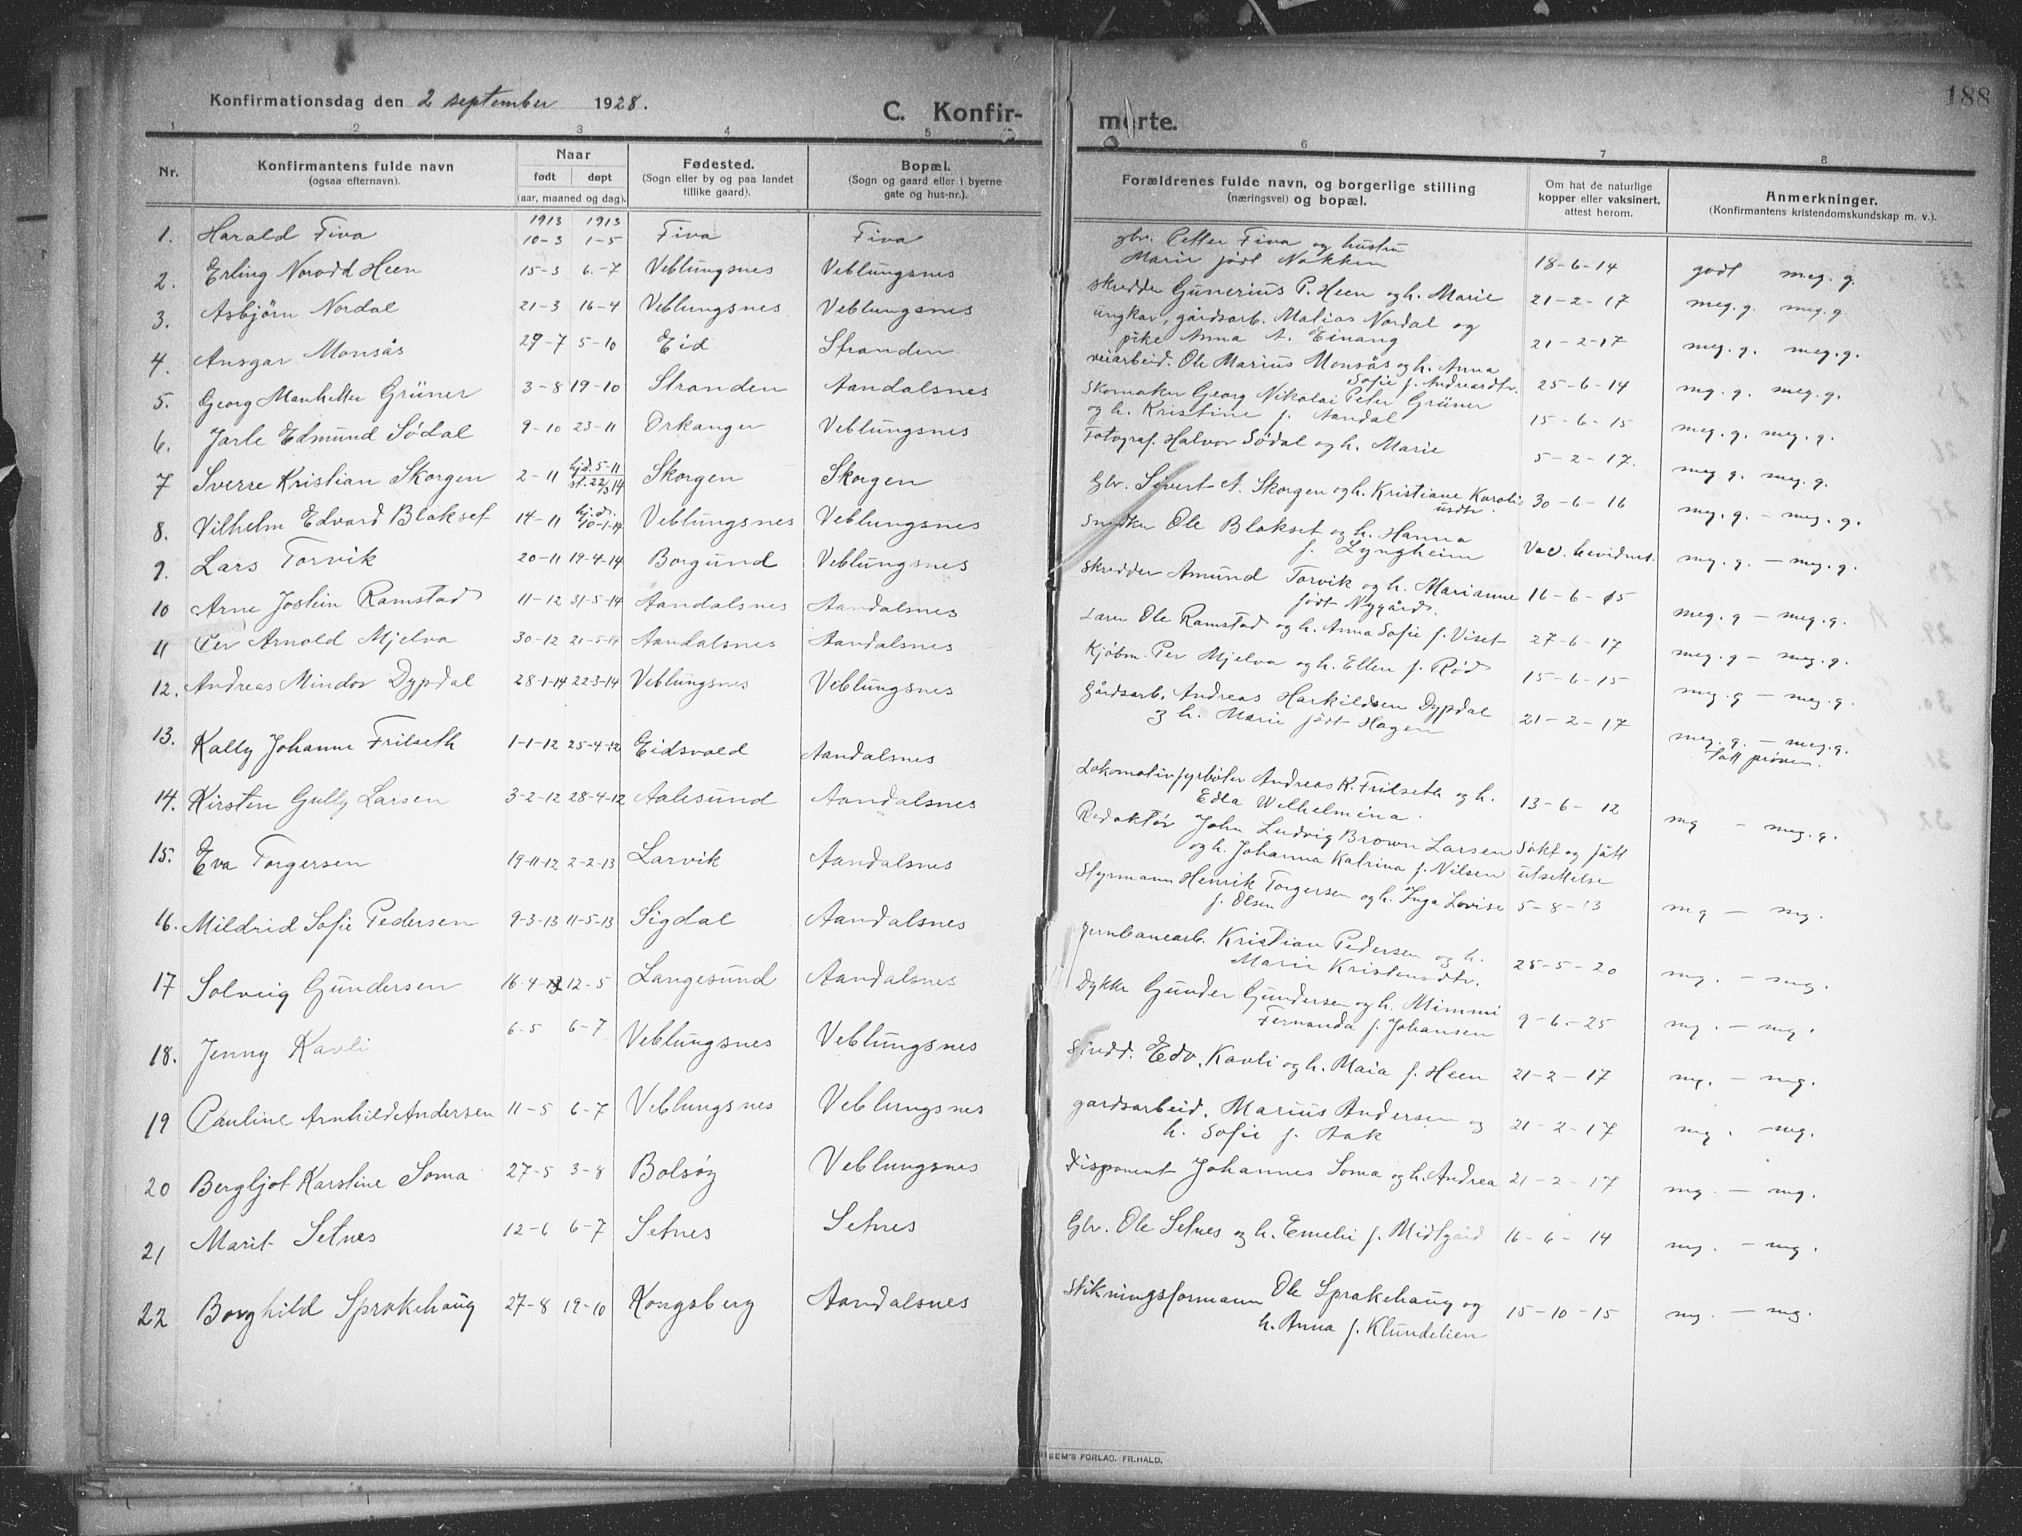 Konfirmationsdag den 2 september 1928.
C. Konfir-
merte.
188
1 2 3 4 5 6 7 8
Nr.
Konfirmantens fulde navn
(ogsaa efternavn).
Naar
født døpt
(aar, maaned og dag).
Fødested.
(Sogn eller by og paa landet
tillike gaard).
Bopæl.
(Sogn og gaard eller i byerne
gate og hus-nr.).
Forældrenes fulde navn, og borgerlige stilling
(næringsvei) og bopæl.
Om hat de naturlige
kopper eller vaksinert,
attest herom.
Anmerkninger.
(Konfirmantens kristendomskundskap m. v.).
1913 1913
1. Harald Fiva 10-3 1-5 Fiva Fiva
gbr. Petter Fiva og hustru
Marie født Nakken 18-6-14 godt meg. g.
2. Erling Norodd Heen 15-3 6-7 Veblungsnes Veblungsnes
skredder Gunerius P. Heen og h. Marie 21-2-17 meg. g. meg. g
3. Asbjørn Nordal 21-3 16-4 Veblungsnes Veblungsnes
ungkar, gårdsarb. Matias Nordal og
pike Anna A. Einang 21-2-17 meg. g. meg. g.
4. Ansgar Monsås 29-7 5-10 Eid Stranden
veiarbeid. Ole Marius Monsås og h. Anna
Sofie f. Andreasdtr. 25-6-14 mg. g. meg. g.
5. Georg Manhelter Grüner 3-8 19-10 Stranden Aandalsnes
Skomaker Georg Nikolai Peter Grüner
og h. Kristine f. Aandal 15-6-15 meg. g. meg. g.
6. Jarle Edmund Sødal 9-10 23-11 Orkanger Veblungsnes
Fotograf. Halvor Sødal og h. Marie 5-2-17. meg g. meg. g.
7 Sverre Kristian Skorgen 2-11 hjd. 5-11
st. 22/3 14 Skorgen Skorgen
Gbr. Sivert A. Skorgen og h. Kristiane Karoli-
usdtr. 30-6-16 meg. g. - meg. g.
8. Vilhelm Edvard Blokset 14-11 hj. d.
10-1-14 Veblungsnes Veblungsnes
Snedker Ole Blokset og h. Hanna
f. Lyngheim Vac. bevidnet. meg. g. - meg. g.
9. Lars Torvik 20-11 19-4-14 Borgund Veblungsnes
Skredder Amund Torvik og h. Marianne
født Nygård. 16-6-15 meg. g - meg. g.
10 Arne Jostein Ramstad 11-12 31-5-14 Aandalsnes Aandalsnes
Lærer Ole Ramstad og h. Anna Sofie f. Viset 27-6-17 meg. g - meg. g.
11 Per Arnold Mjelva 30-12 21-5-14 Aandalsnes Aandalsnes
Kjøbm. Per Mjelva og h. Ellen f. Rød 15-6-15 meg. g - meg. g.
12. Andreas Mindor Dypdal 28-1-14 22-3-14 Veblungsnes Veblungsnes
gårdsarb. Andreas Harkildsen Dypdal
og h. Marie født Hagen 21-2-17 meg. g. - meg. g.
tatt prøven.
13. Kally Johanne Frilseth 1-1-12 25-4-12 Eidsvold Aandalsnes
Lokomotivfyrbøter Andreas K. Frilseth og h.
Edla Wilhelmina. 13-6-12 mg - meg. g.
14. Kirsten Gully Larsen 3-2-12 28-4-12 Aalesund Aandalsnes
Redaktør John Ludvig Brown Larsen
og h. Johanna Katrina f. Nilsen
søkt og fått
utsettelse
15. Eva Torgersen 19-11-12 2-2-13 Larvik Aandalsnes
Styrmann Henrik Torgersen og h. Inga Lovise
f. Olsen 5-8-13 mg - mg.
16. Mildrid Sofie Pedersen 9-3-13 11-5-13 Sigdal Aandalsnes
Jernbanearb. Kristian Pedersen og h.
Marie Kristensdtr. 25-5-20 mg. - mg.
17 Solveig Gundersen 16-4-13 12-5 Langesund Aandalsnes
Dykker Gunder Gundersen og h. Mimmi
Fernanda f. Johansen 9-6-25 mg. - mg.
18. Jenny Kavli 6-5 6-7 Veblungsnes Veblungsnes
Edv. Kavli og h. Maia f. Heen 21-2-17 mg. - mg.
19 Pauline Arnhild Andersen 11-5 6-7 Veblungsnes Veblungsnes
gardsarbeid. Marius Andersen og
h. Sofie f. Aak 21-2-17 mg. mg.
20 Bergljot Karstine Soma 27-5 3-8 Bolsøy Veblungsnes
Disponent Johannes Soma og h. Andrea 21-2-17 mg. - mg.
21 Marit Setnes 12-6 6-7 Setnes Setnes
Gbr. Ole Setnes og h. Emelie f. Midtgård 16-6-14 mg. - mg.
22 Borghild Sprakehaug 27-8 19-10 Kongsberg Aandalsnes
Stikningsformann Ole Sprakehaug og
h. Anna f. Klundelien 15-10-15 mg. - mg.
SEM'S FORLAG. FR.HALD.